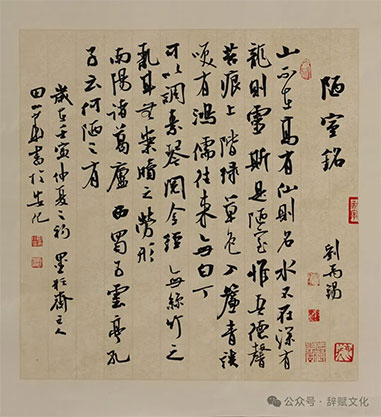 陋室銘
劉禹錫
山不在高有仙則名水不在深有
龍則靈斯是陋室惟吾德馨
苔痕上階緑草色入簾青談
笑有鴻儒往来無白丁
可以調素琴閱金經無絲竹之
亂耳無案牘之勞形
南陽諸葛廬西蜀子雲亭孔
子云何陋之有
歲在壬寅仲夏之初墨齋主人
田書於安化
公众号 · 辞赋文化